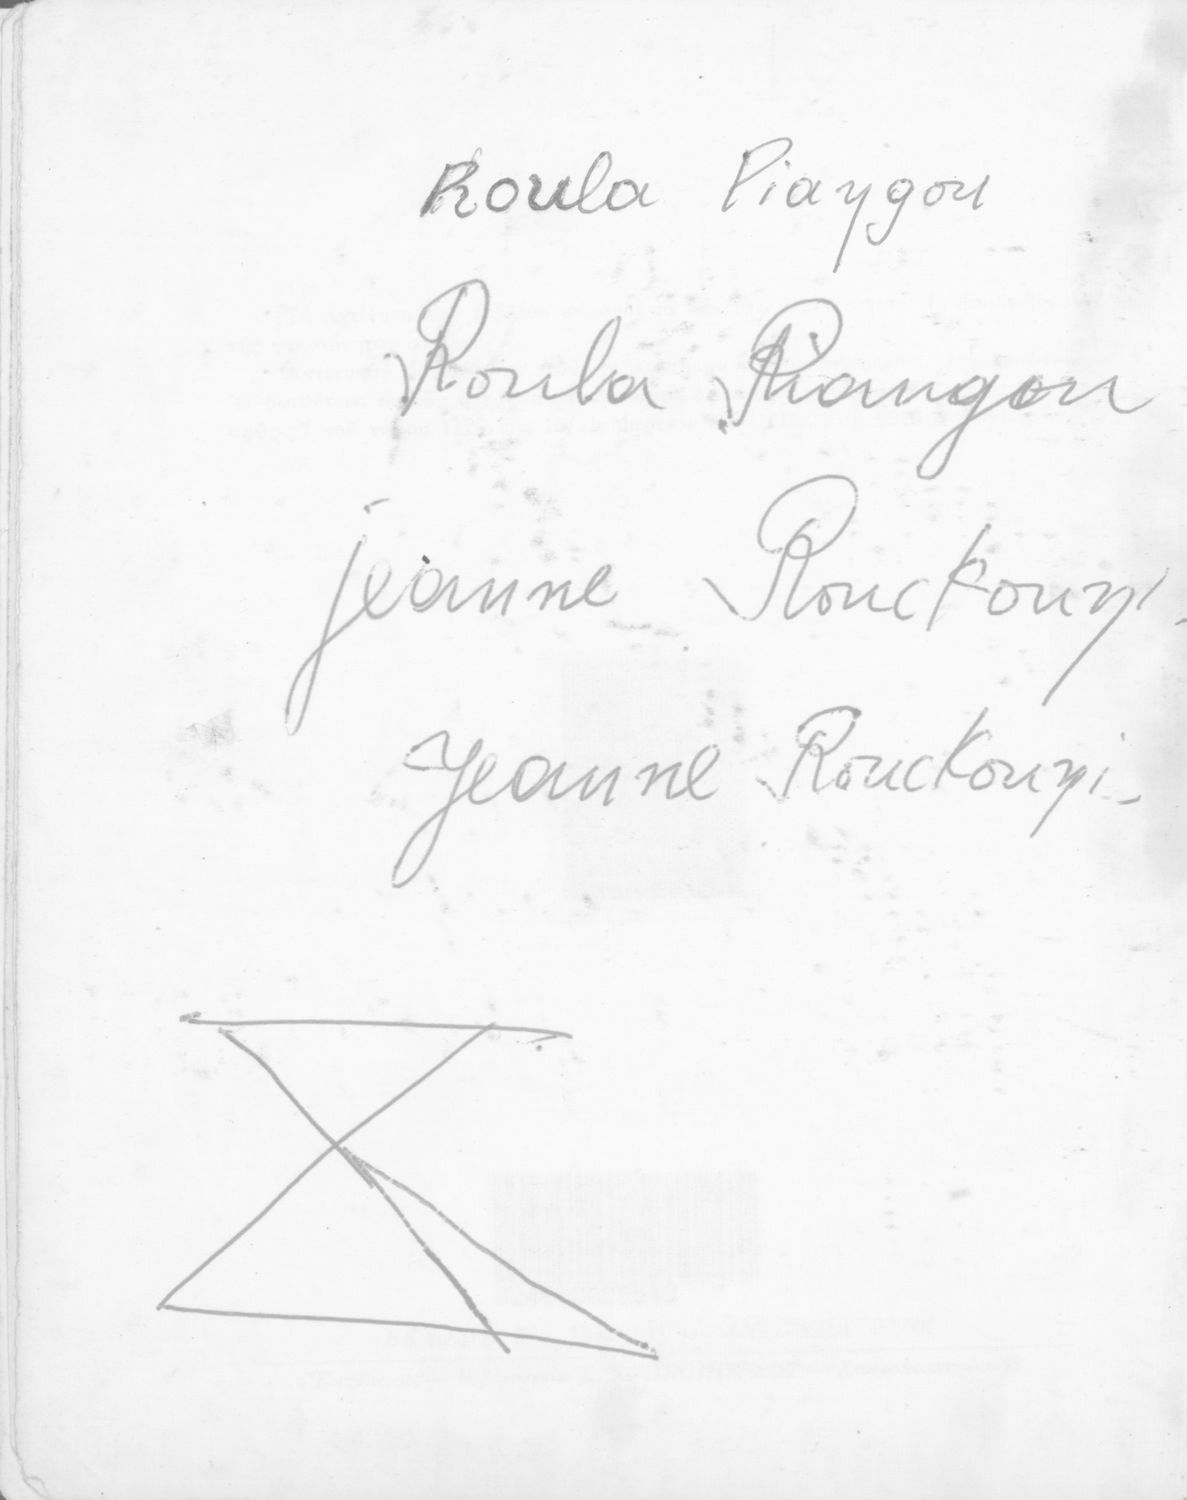 Roula Piaygou
Roula Riangou
jeanne Rouckouyi
Jeanne Rouckouyi